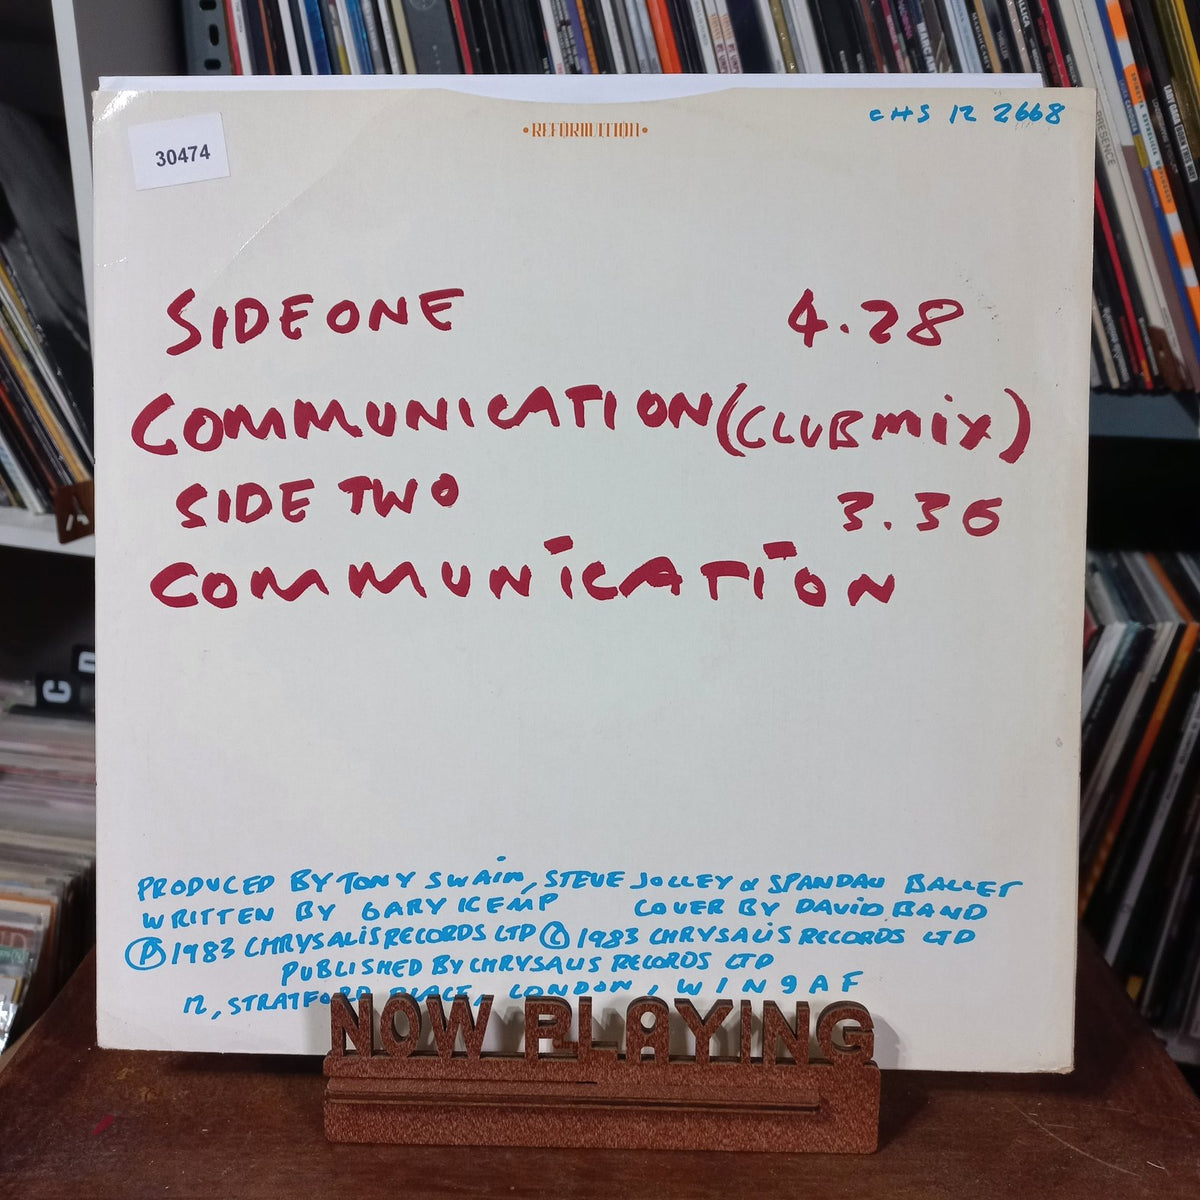 30474
•REFORMATION•
CHS 12 2668
SIDE ONE 4.28
COMMUNICATION (CLUB MIX)
SIDE TWO 3.36
COMMUNICATION
PRODUCED BY TONY SWAIN, STEVE JOLLEY & SPANDAU BALLET
WRITTEN BY GARY KEMP COVER BY DAVID BAND
Ⓟ 1983 CHRYSALIS RECORDS LTD © 1983 CHRYSALIS RECORDS LTD
PUBLISHED BY CHRYSALIS RECORDS LTD
12, STRATFORD PLACE, LONDON, W1N 9AF
NOW PLAYING
C
PRESENCE
LADY GAGA BORN THIS WAY